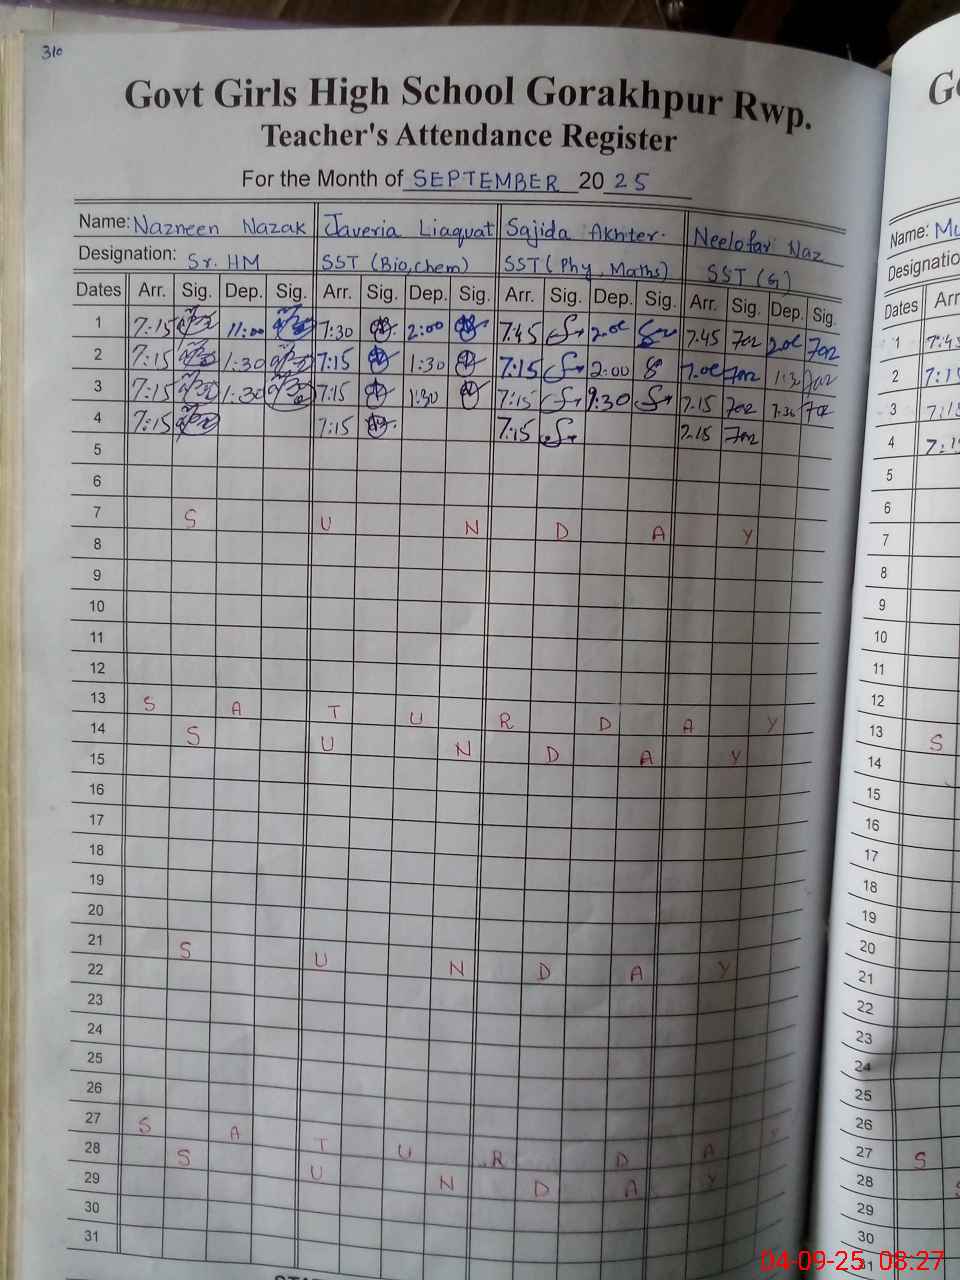 310
Govt Girls High School Gorakhpur Rwp.
Teacher's Attendance Register
For the Month of SEPTEMBER 20 25
Name: Nazneen Nazak Javeria Liaquat Sajida Akhter. Neelofar Naz
Designation: Sr. HM SST (Bio, chem) SST (Phy, Maths) SST (G)
Dates Arr. Sig. Dep. Sig. Arr. Sig. Dep. Sig. Arr. Sig. Dep. Sig. Arr. Sig. Dep. Sig.
1 7:15 11:00 7:30 2:00 7:45 7.45
2 7:15 1:30 7:15 1:30 7:15 2:00
3 7:15 1:30 7:15 1:30 7:15 7.15
4 7:15 7:15 7:15 7.15
5
6
7 S U N D A Y
8
9
10
11
12
13 S A T U R D A Y
14 S U N D A Y
15
16
17
18
19
20
21 S U N D A Y
22
23
24
25
26
27 S A T U R D A Y
28 S U N D A Y
29
30
31
Name:
Designatio
Dates Arr
1 7:45
2
3
4
5
6
7
8
9
10
11
12
13 S
14
15
16
17
18
19
20
21
22
23
24
25
26
27 S
28
29
30
31
04-09-25 08:27